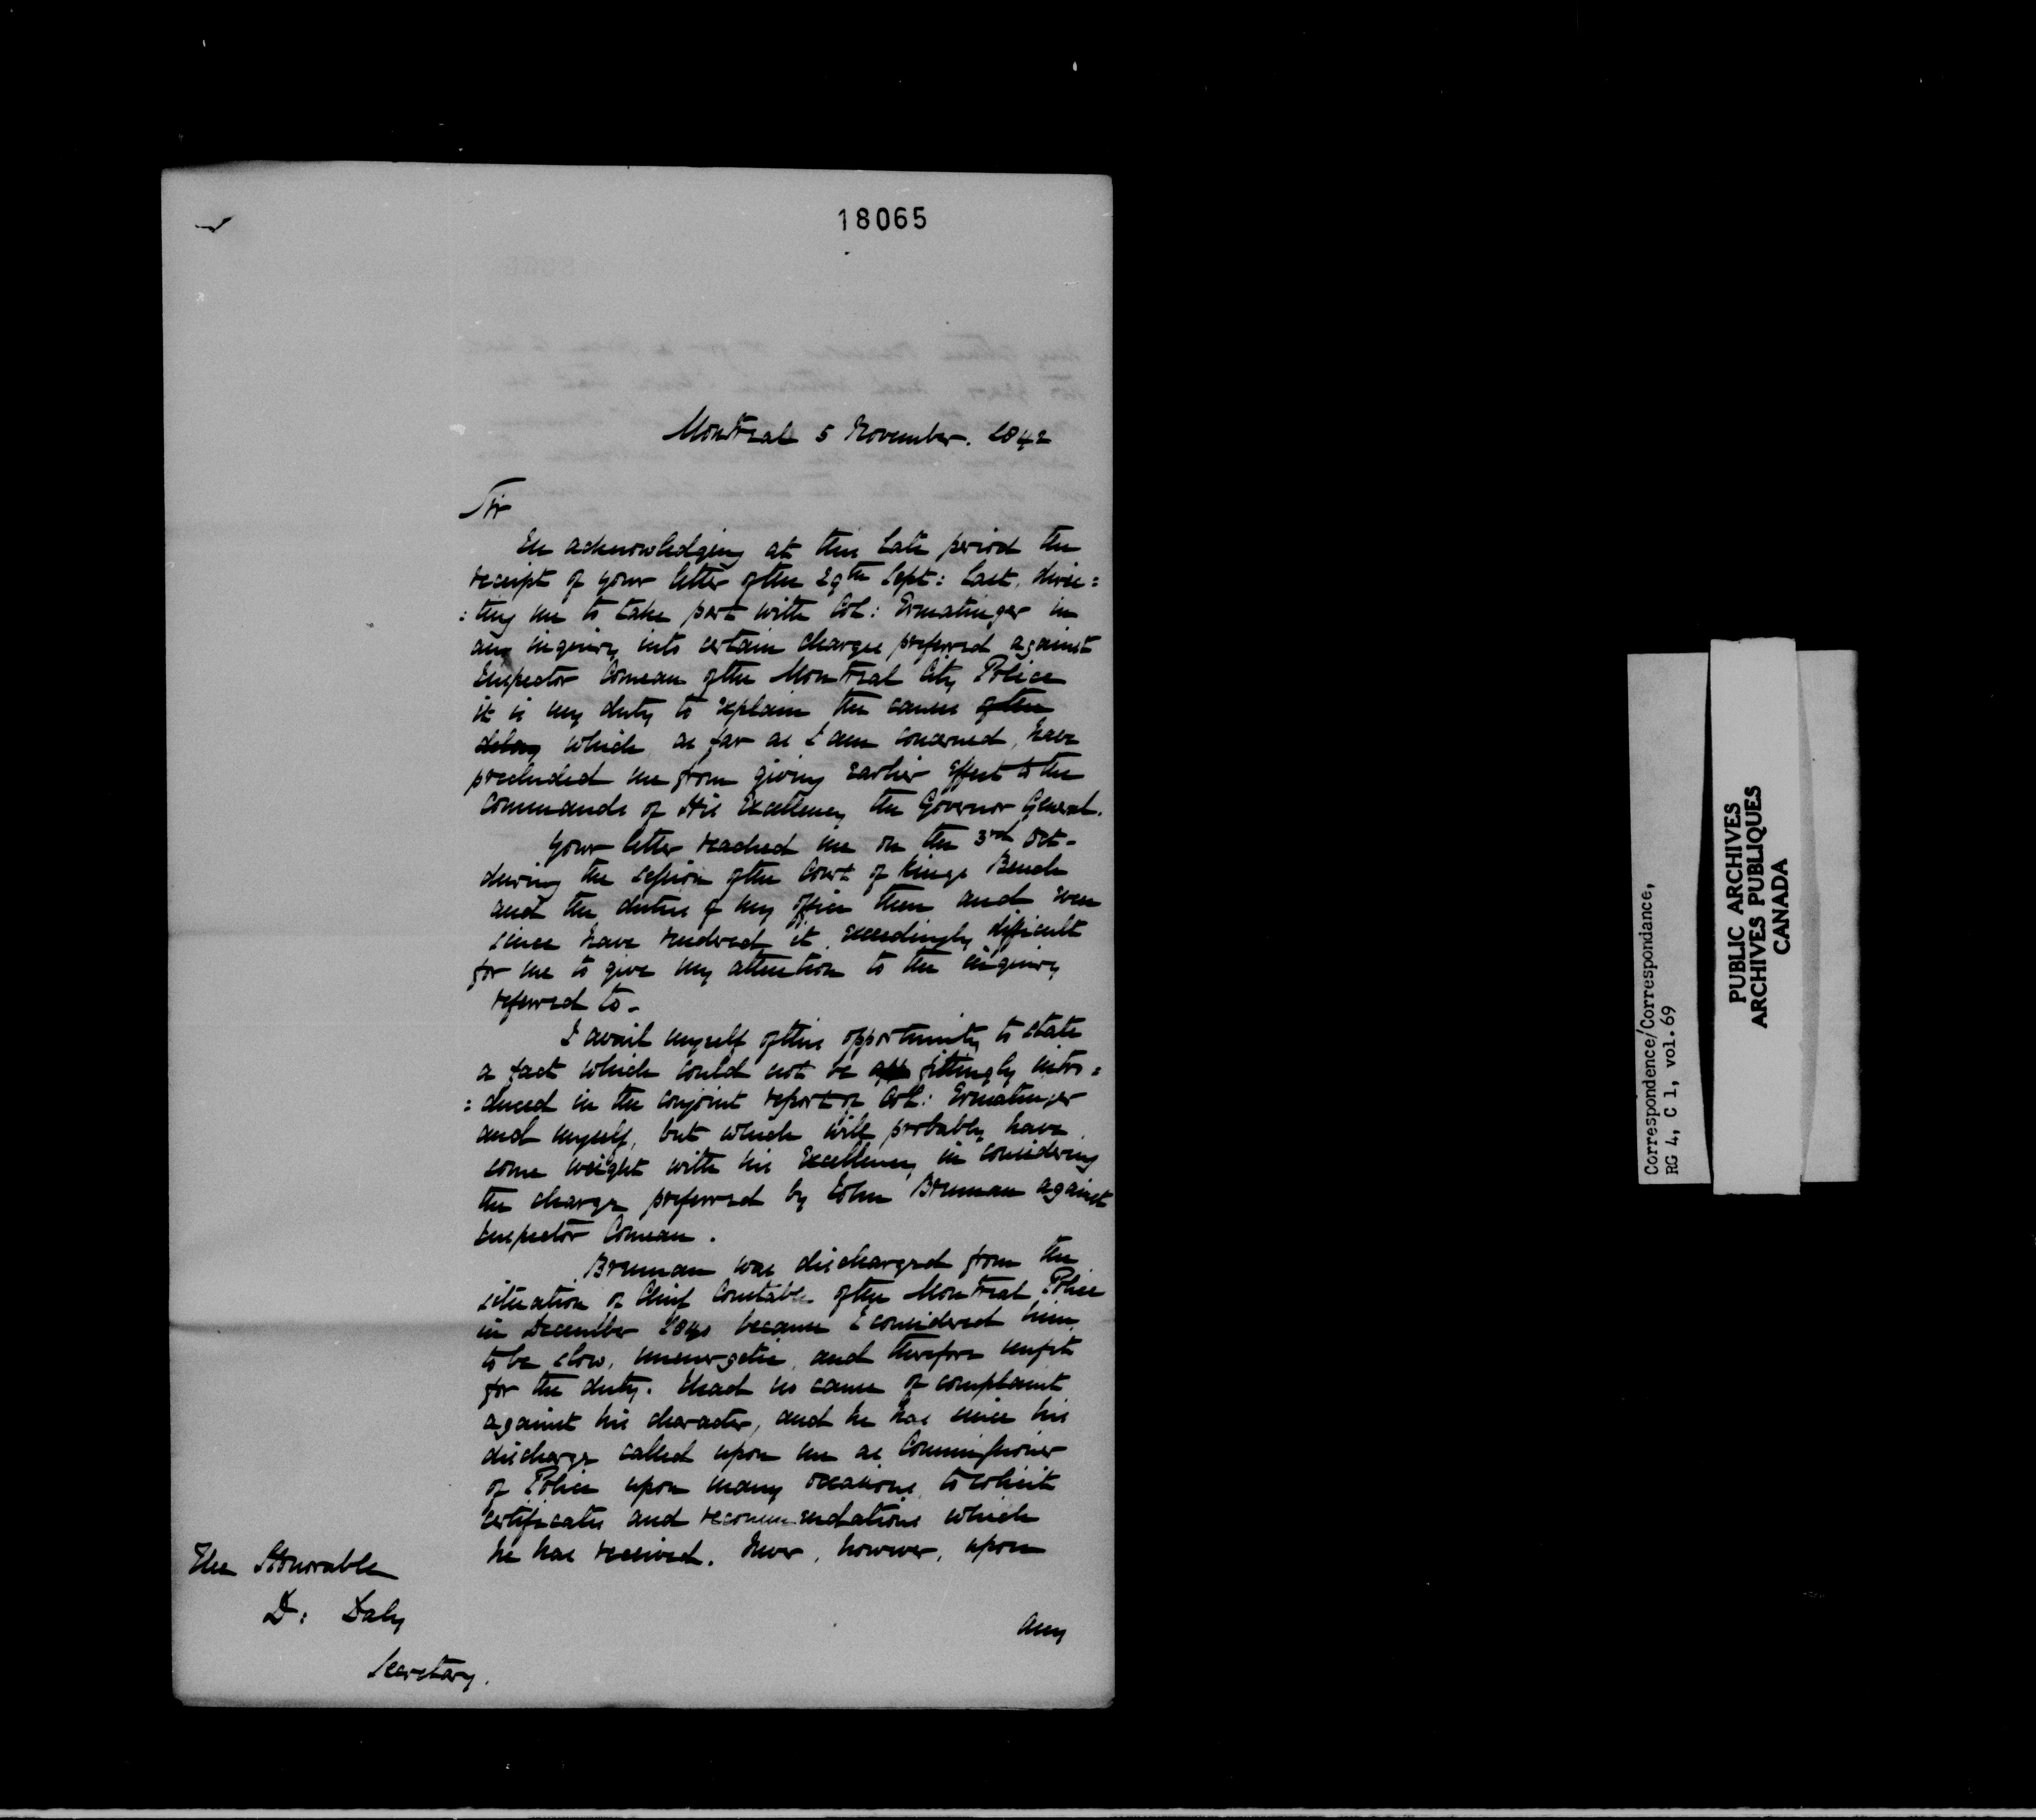 18065
Montreal 5 November. 1842
Sir
In acknowledging at this late period the
receipt of your letter of the 29th Sept: last, direc=
=ting me to take part with Col: Ermatinger in
any inquiry into certain charges preferred against
Inspector Comeau of the Montreal City Police
it is my duty to explain the causes of the
delay which as far as I am concerned, have
precluded me from giving earlier effect to the
Commands of His Excellency the Governor General.
Your letter reached me on the 3rd Oct-
during the session of the Court of Kings Bench
and the duties of my office then and ever
since have rendered it exceedingly difficult
for me to give my attention to the inquiry
referred to-
I avail myself of this opportunity to state
a fact which could not be app fittingly intro=
=duced in the conjoint report of Col: Ermatinger
and myself, but which will probably have
some weight with his Excellency in considering
the charge preferred by John Brennan against
Inspector Comeau.
Brennan was discharged from the
situation of Chief Constable of the Montreal Police
in December 1840 because I considered him
to be slow, unenergetic, and therefore unfit
for the duty. I had no cause of complaint
against his character, and he has since his
discharge called upon me as Commissioner
of Police upon many occasions, to solicit
certificates and recommendations which
he has received. Never, however, upon
any
The Honorable
D: Daly
Secretary.
Correspondence/Correspondance,
RG 4, C 1, vol. 69
PUBLIC ARCHIVES
ARCHIVES PUBLIQUES
CANADA